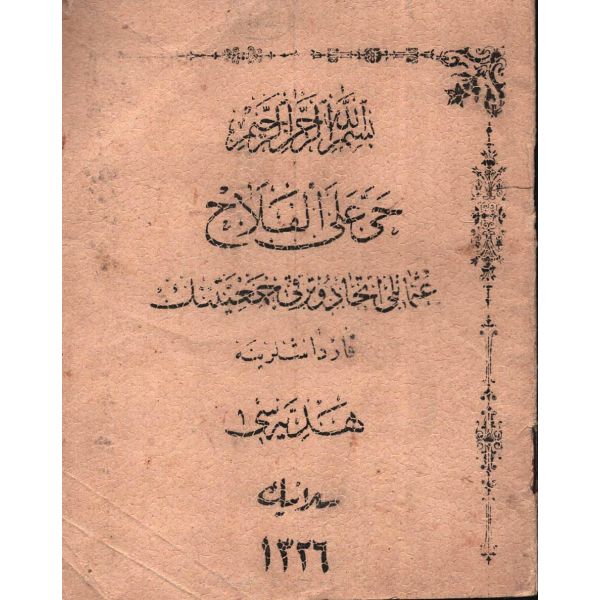 بسم الله الرحمن الرحيم
حي على الفلاح
عثمانلى اتحاد وترقى جمعيتنك
قارداشلرينه
هديه سى ١
سلانيك
١٣٢٦